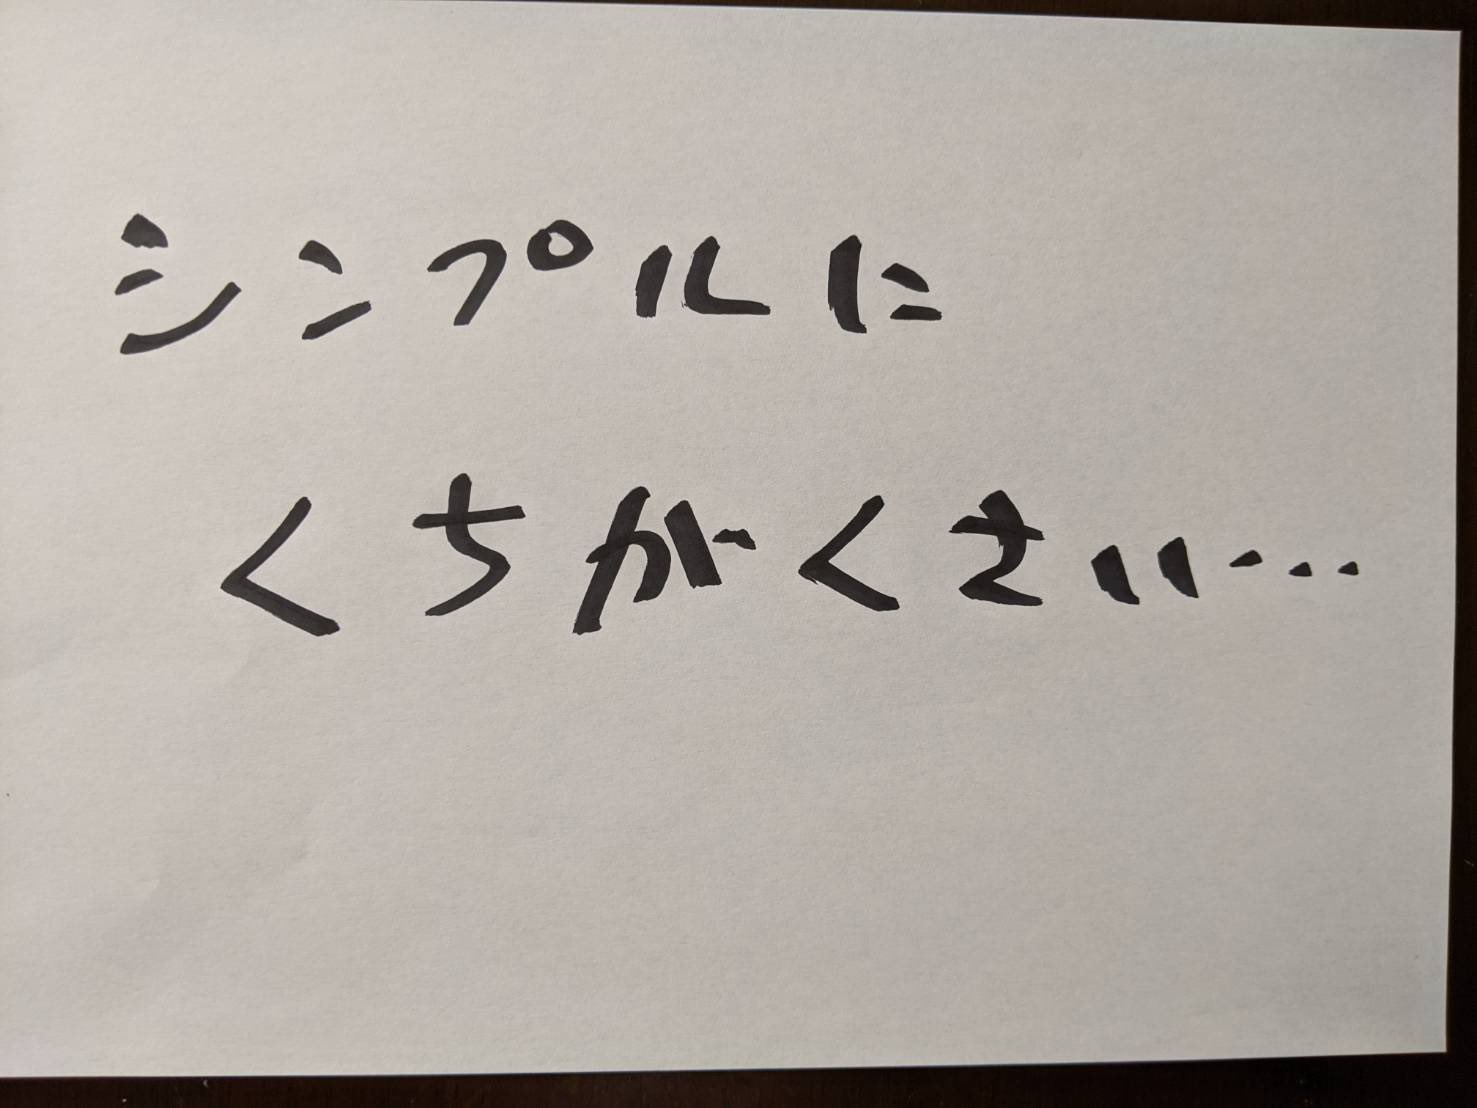 シンプルに
くちがくさい…